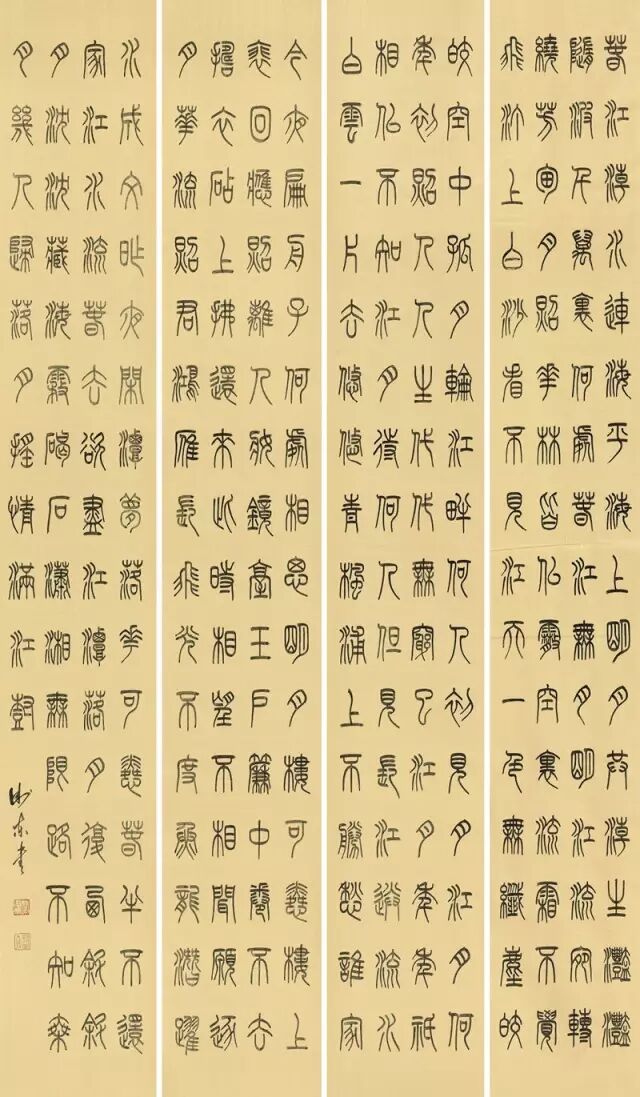 春江潮水連海平海上明月共潮生灩灩
隨波千萬里何處春江無月明江流宛轉
繞芳甸月照花林皆似霰空裏流霜不覺
飛汀上白沙看不見江天一色無纖塵皎
皎空中孤月輪江畔何人初見月江月何
年初照人人生代代無窮已江月年年祇
相似不知江月待何人但見長江送流水
白雲一片去悠悠青楓浦上不勝愁誰家
今夜扁舟子何處相思明月樓可憐樓上
裴回應照離人妝鏡臺玉戶簾中卷不去
擣衣砧上拂還來此時相望不相聞願逐
月華流照君鴻雁長飛光不度魚龍潛躍
水成文昨夜閑潭夢落花可憐春半不還
家江水流春去欲盡江潭落月復西斜斜
月沈沈藏海霧碣石瀟湘無限路不知乘
月幾人歸落月搖情滿江樹